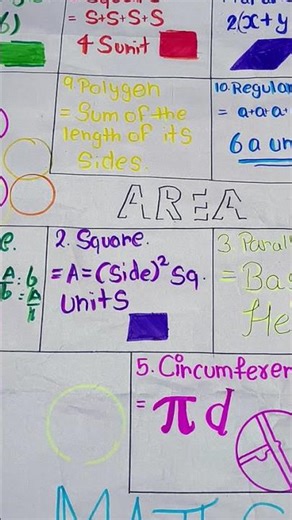 6)
= S+S+S+S
4 Sunit
2(x+y
9. Polygon
= Sum of the
length of its
Sides.
10. Regular
= a+a+a+
6 a un
AREA
2. Square.
= A = (Side)² Sq.
Units
3 Paral
= Bas
He
5. Circumferen
= πd